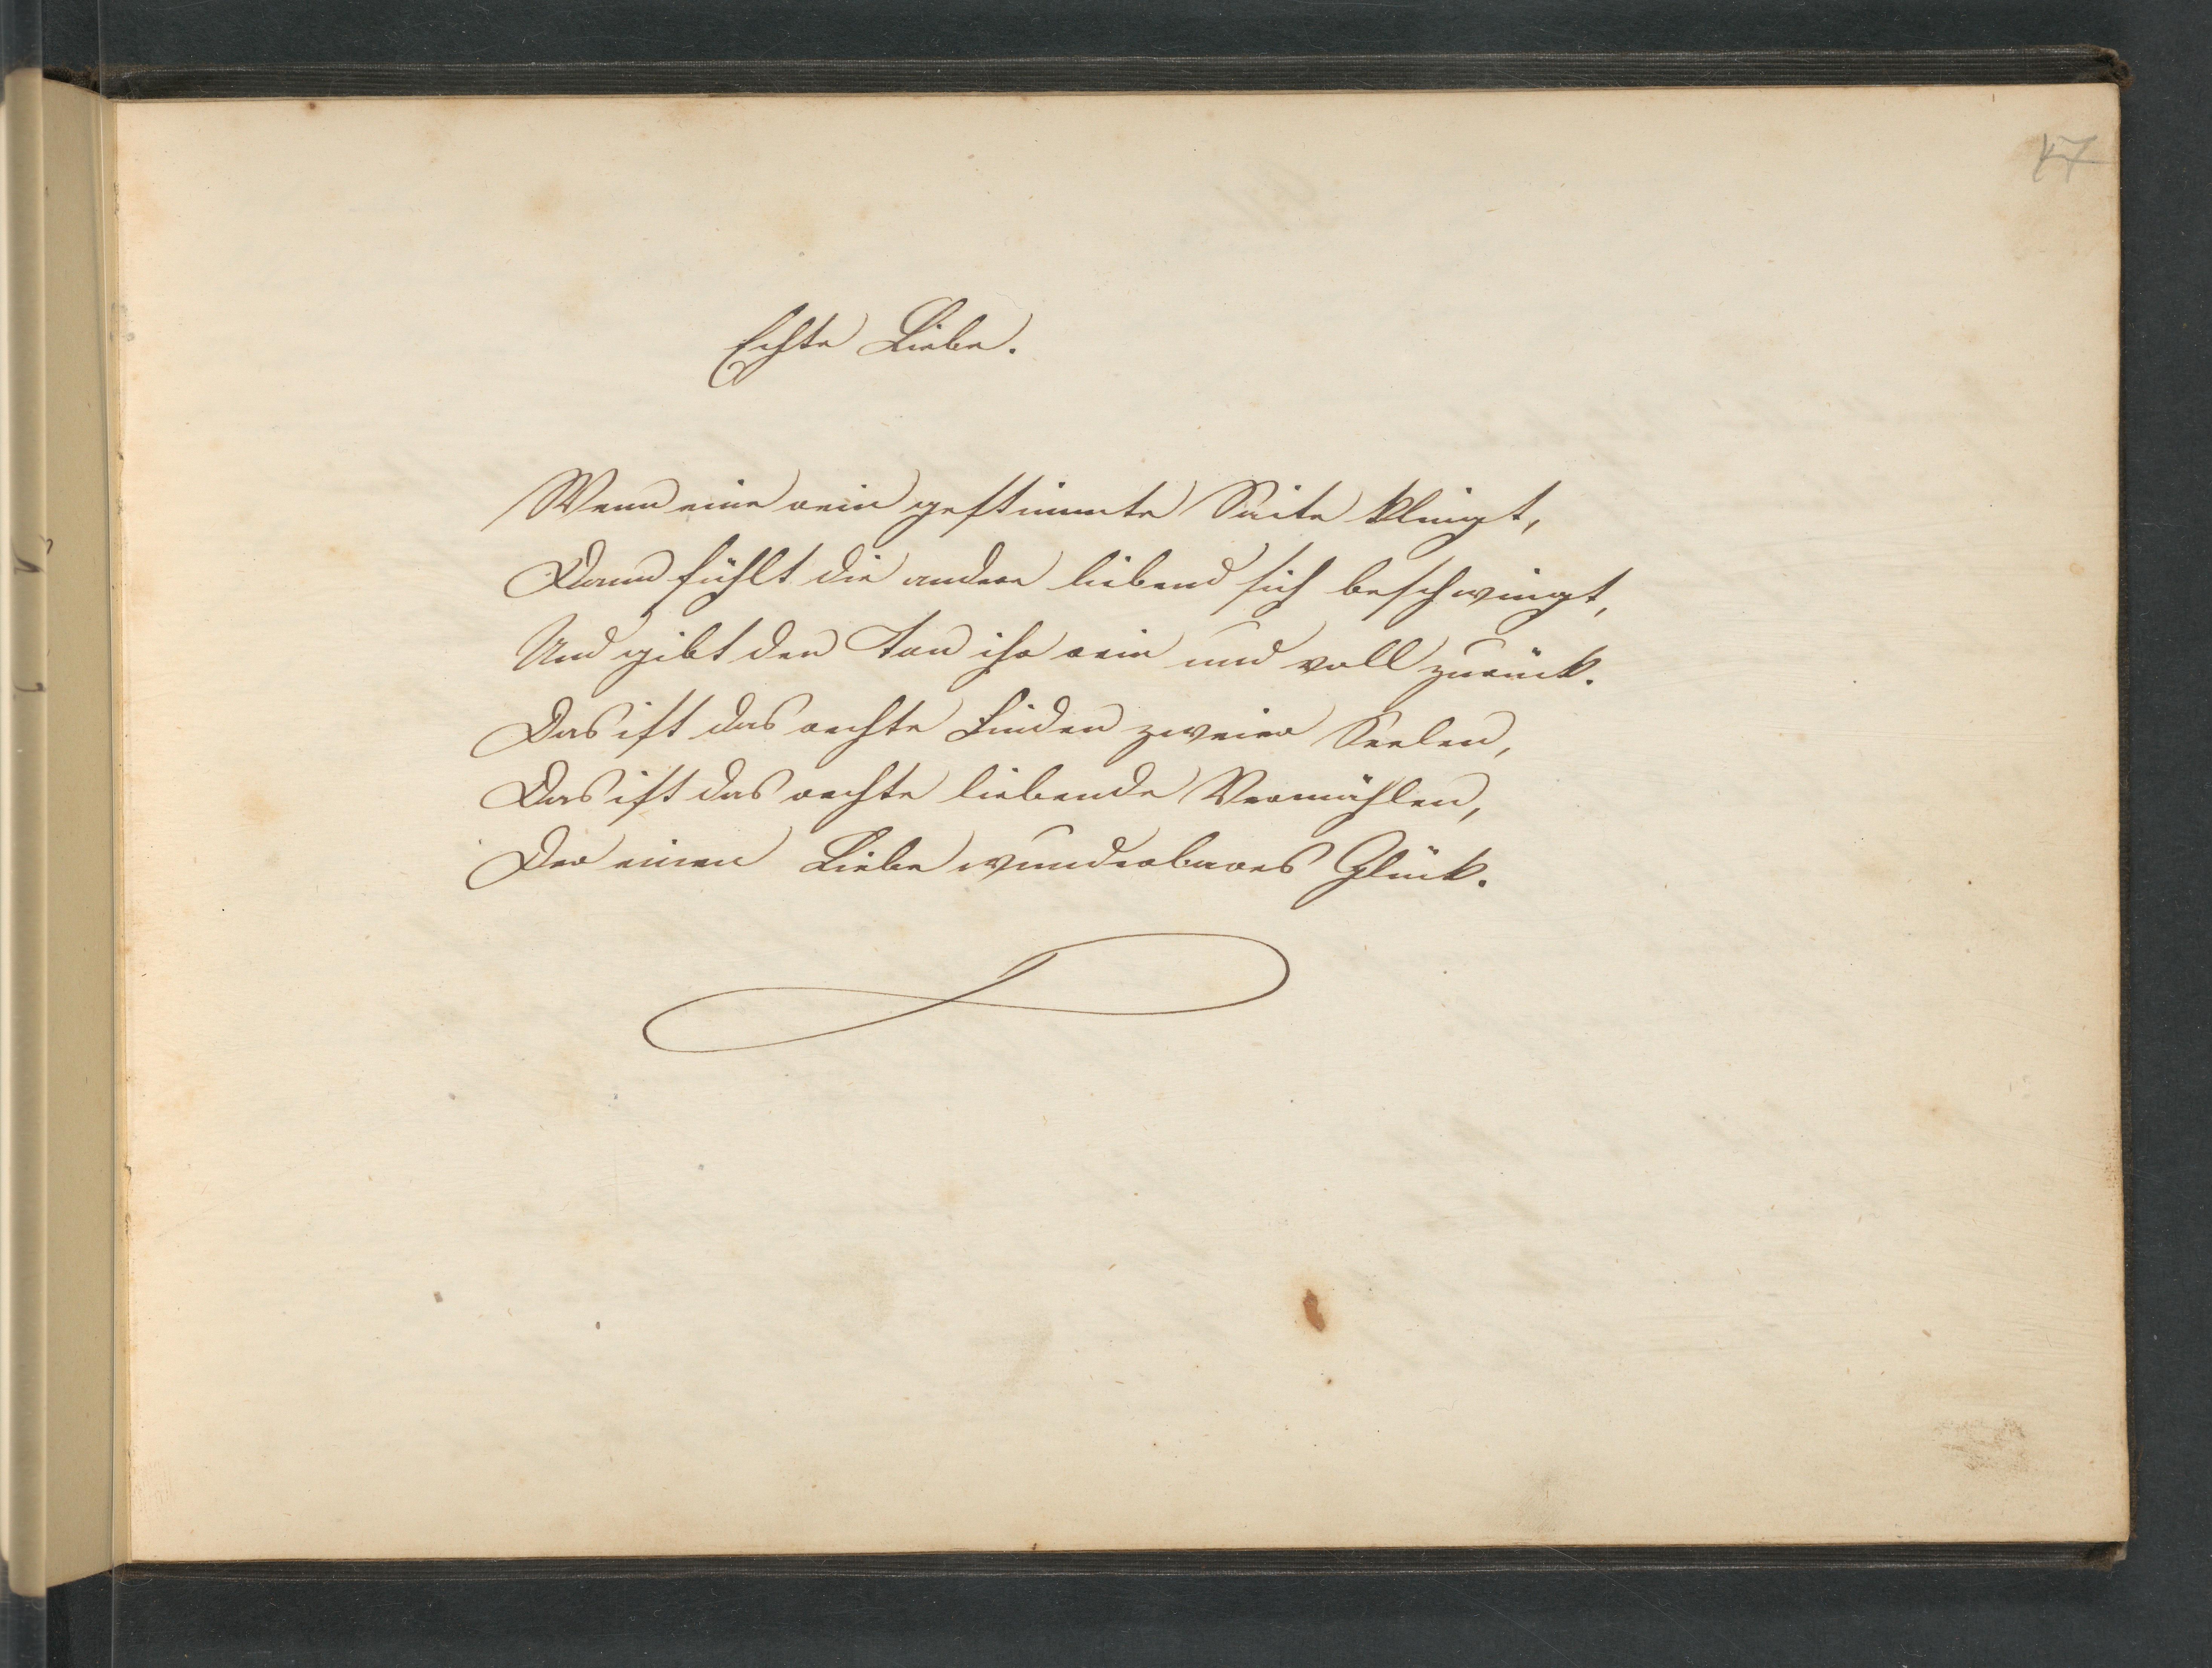 47
Echte Liebe.
Wenn eine rein gestimmte Saite klingt,
Dann fühlt die andere liebend sich beschwingt,
Und gibt den Ton ihr rein und voll zurück.
Das ist das rechte Finden zweier Seelen,
Das ist das rechte liebende Vermählen,
Der einen Liebe wunderbares Glück.